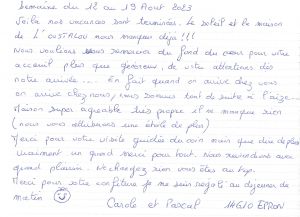 Semaine du 12 au 19 Aout 2023
Voilà nos vacances sont terminées. Le soleil et la maison
de L'OUSTALOU nous manquer déjà !!!
Nous voulions vous remercier du fond du cœur pour votre
accueil plus que généreux, de votre attentions dès
notre arrivée.... En fait quand on arrive chez vous
on arrive chez nous, nous sommes tout de suite à l'aize.
Maison super agréable très propre il ne manque rien
(nous vous attribuons une étoile de plus)
Merci pour votre visite guidée du coin mais que dire de plus
vraiment un grand merci pour tout. Nous reviendrons avec
grand plaisir. Ne changez rien vous êtes au top.
Merci pour votre confiture je me suis régalé au dejeuner du
matin
Carole et Pascal